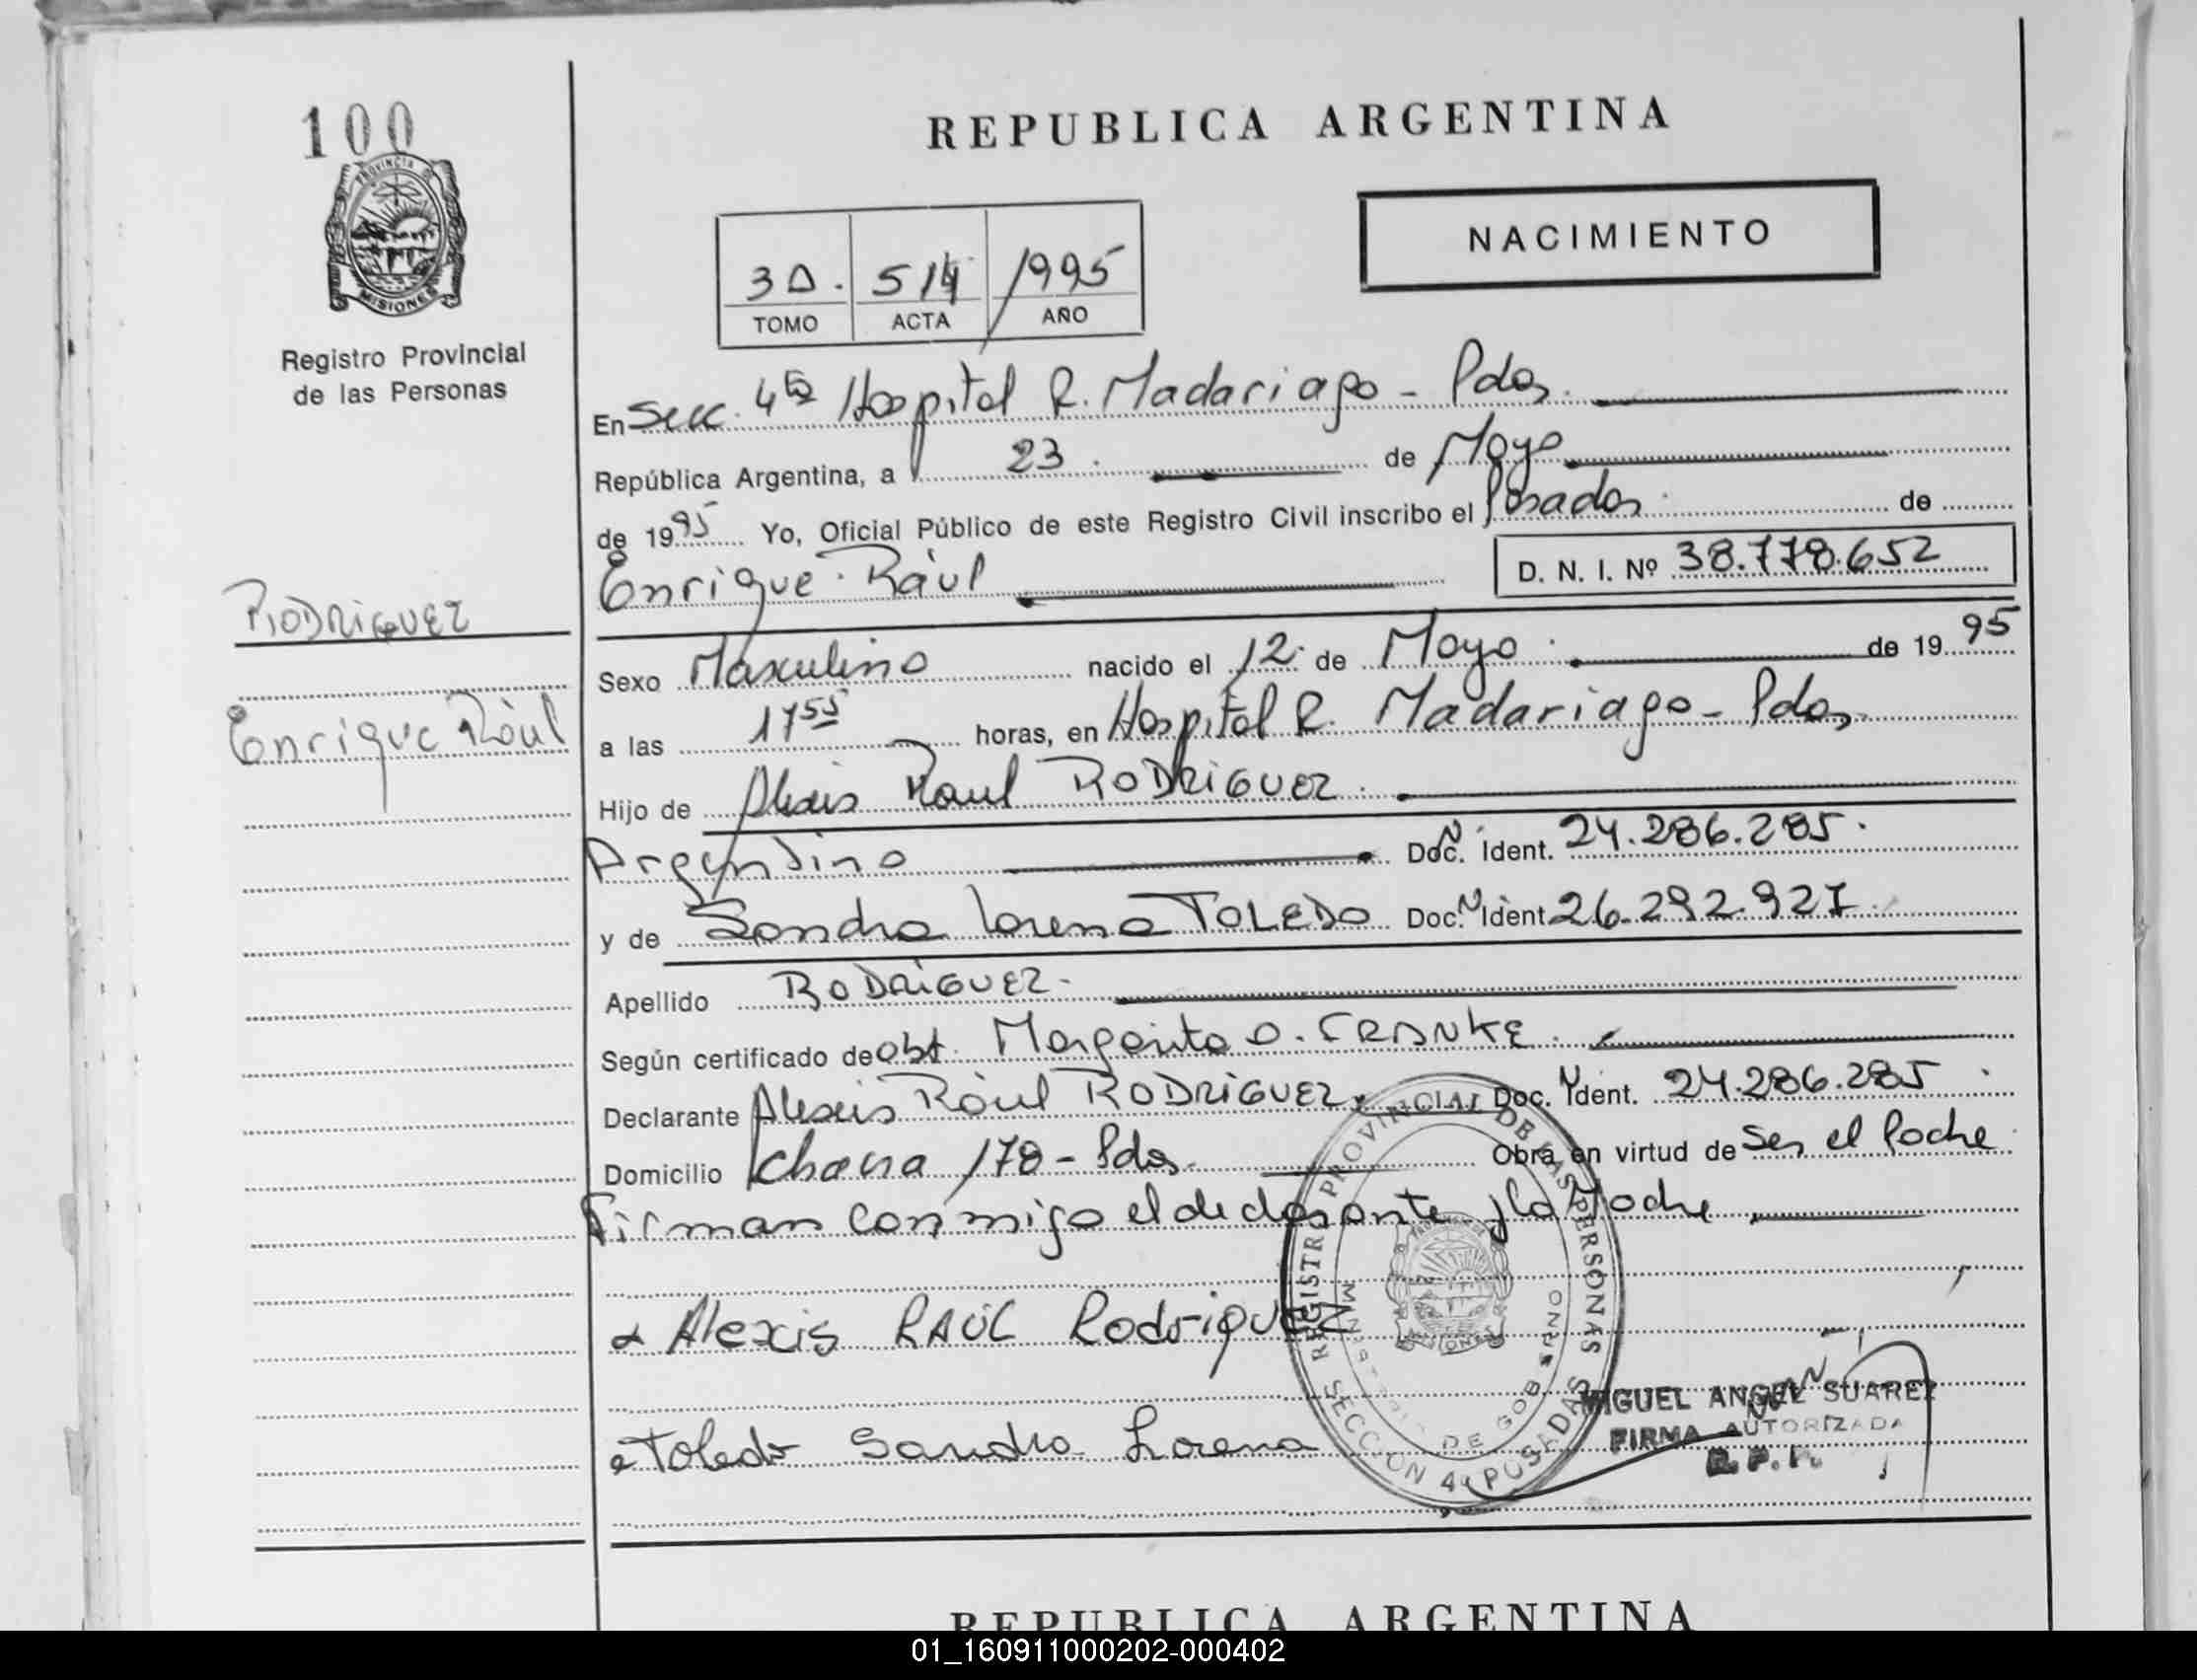 100
REPUBLICA ARGENTINA
PROVINCIA DE MISIONES
NACIMIENTO
5 14 1995
TOMO ACTA AÑO
Registro Provincial
de las Personas
En Secc. 4ta Hospital R. Madariaga - Pdas.
República Argentina, a 23 de Mayo
de 1995 Yo, Oficial Público de este Registro Civil inscribo el Posadas de
Enrique Raúl D. N. I. Nº 38.778.652
RODRIGUEZ
Sexo Masculino nacido el 12 de Mayo de 1995
Enrique Raúl
a las 1755 horas, en Hospital R. Madariaga - Pdas.
Hijo de Alexis Raul RODRIGUEZ.
Argentino Doc. Ident. 24.286.285.
y de Sandra Lorena TOLEDO Doc. Ident 26.292.927
Apellido RODRIGUEZ.
Según certificado de obt. Margarita O. FRANKE.
Declarante Alexis Raúl RODRIGUEZ Doc. Ident. 24.286.285
Domicilio 178 - Pdas. Obra en virtud de Ser el Padre
Firman conmigo el declarante y la Madre
Alexis RAÚL Rodriguez
Toledo Sandra Lorena
REGISTRO PROVINCIAL DE LAS PERSONAS
MINISTERIO DE GOBIERNO
SECCION 4ª POSADAS
MIGUEL ANGEL SUAREZ
FIRMA AUTORIZADA
R. P. P.
REPUBLICA ARGENTINA
01_160911000202-000402